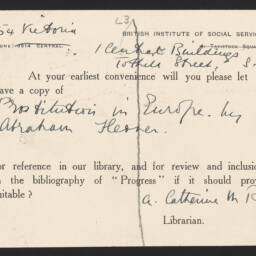 54 Victoria L3
BRITISH INSTITUTE OF SOCIAL SERVI
ONE: 9514 CENTRAL. 1 Central Buildings
Tothill Street, S.
At your earliest convenience will you please let
ave a copy of
Prostitution in Europe. by
Abraham Flexner.
or reference in our library, and for review and inclusio
n the bibliography of "Progress" if it should prov
uitable ?
A. Catherine M
Librarian.